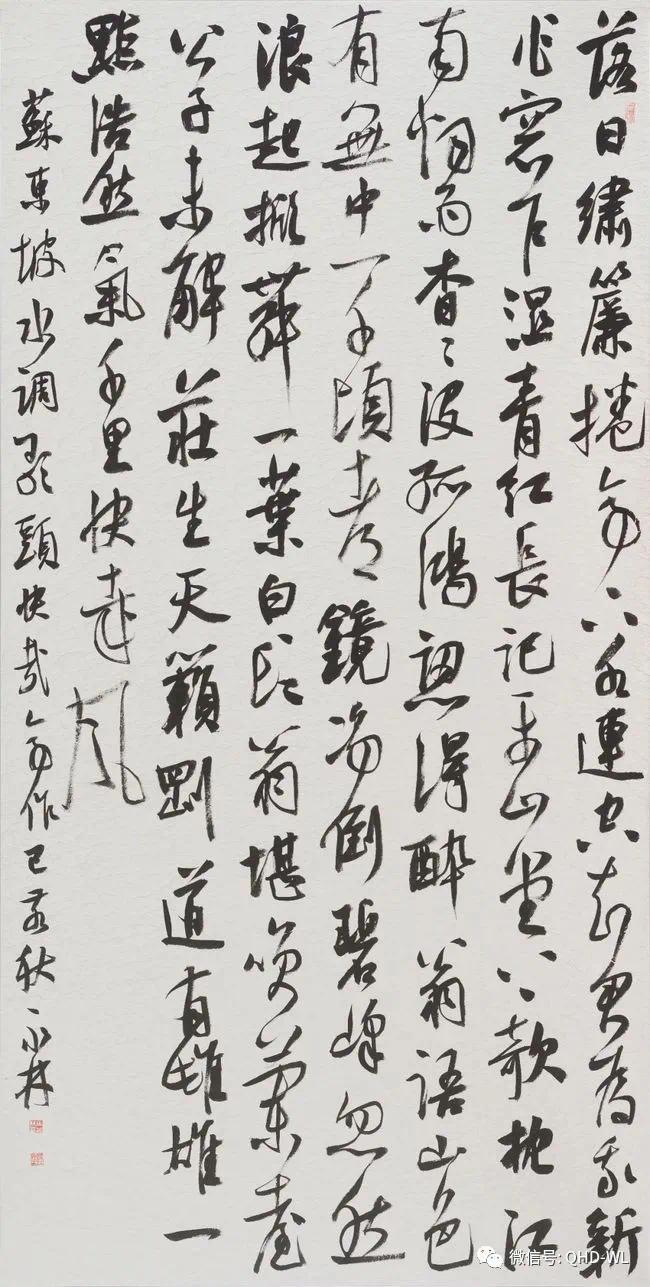 落日繡簾捲亭下水連空知君為我新
作窓户湿青紅長記平山堂上欹枕江
南烟雨杳々没孤鴻認得醉翁語山色
有無中一千頃都鏡净倒碧峰忽然
浪起掀舞一葉白頭翁堪笑蘭臺
公子未解莊生天籟剛道有雌雄一
點浩然氣千里快哉風
蘇東坡水調歌頭快哉亭作己亥秋
微信号: QHD-WL